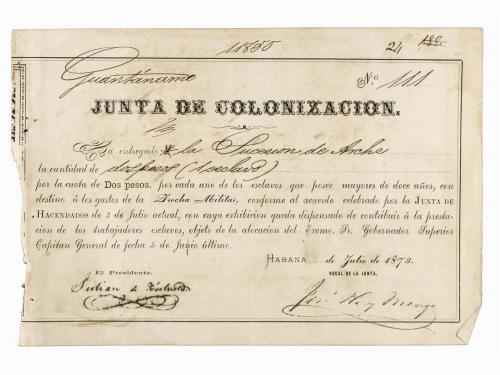 11850
24
Guantánamo
No. 111
JUNTA DE COLONIZACION.
Ha entregado la Sucesion de
la cantidad de dos pesos (1 esclavo)
por la cuota de Dos pesos, por cada uno de los esclavos que posee mayores de doce años, con
destino á los gastos de la Trocha Militar, conforme al acuerdo celebrado por la JUNTA DE
HACENDADOS de 3 de Julio actual, con cuya exhibicion queda dispensado de contribuir á la presta-
cion de los trabajadores esclavos, objeto de la alocucion del Excmo. Sr. Gobernador Superior
Capitan General de fecha 5 de Junio último.
HABANA de Julio de 1873.
El Presidente,
VOCAL DE LA JUNTA,
Julian de Zulueta
José